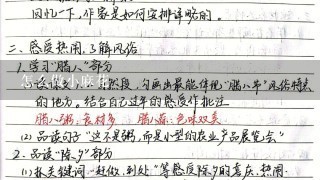 回忆一下，作家是如何安排详略的。
二、感受热闹，了解风俗
1.学习“腊八”部分
自然段，勾画出最能体现“腊八节”风俗特点
的地方。结合自己过年的感受作批注
腊八粥：食材多 腊八蒜：色味双美
(2)品读句子“这不是粥，而是小型的农业产品展览会”
2.品读“除夕”部分
(1)抓关键词“赶做、到处”等感受除夕的喜庆、热闹.